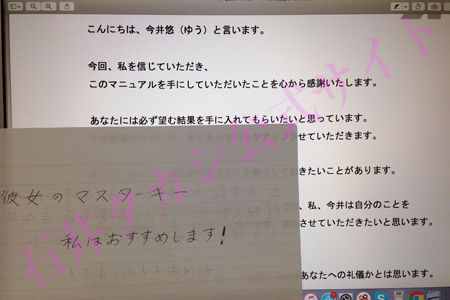 こんにちは、今井悠（ゆう）と言います。
今回、私を信じていただき、
このマニュアルを手にしていただいたことを心から感謝いたします。
あなたには必ず望む結果を手に入れてもらいたいと思っています。
バックアップさせていただきます。
きたいことがあります。
、私、今井は自分のことを
させていただきたいと思います。
あなたへの礼儀かとは思います。
彼女のマスターキー
私はおすすめします!
石井タカシ公式サイト